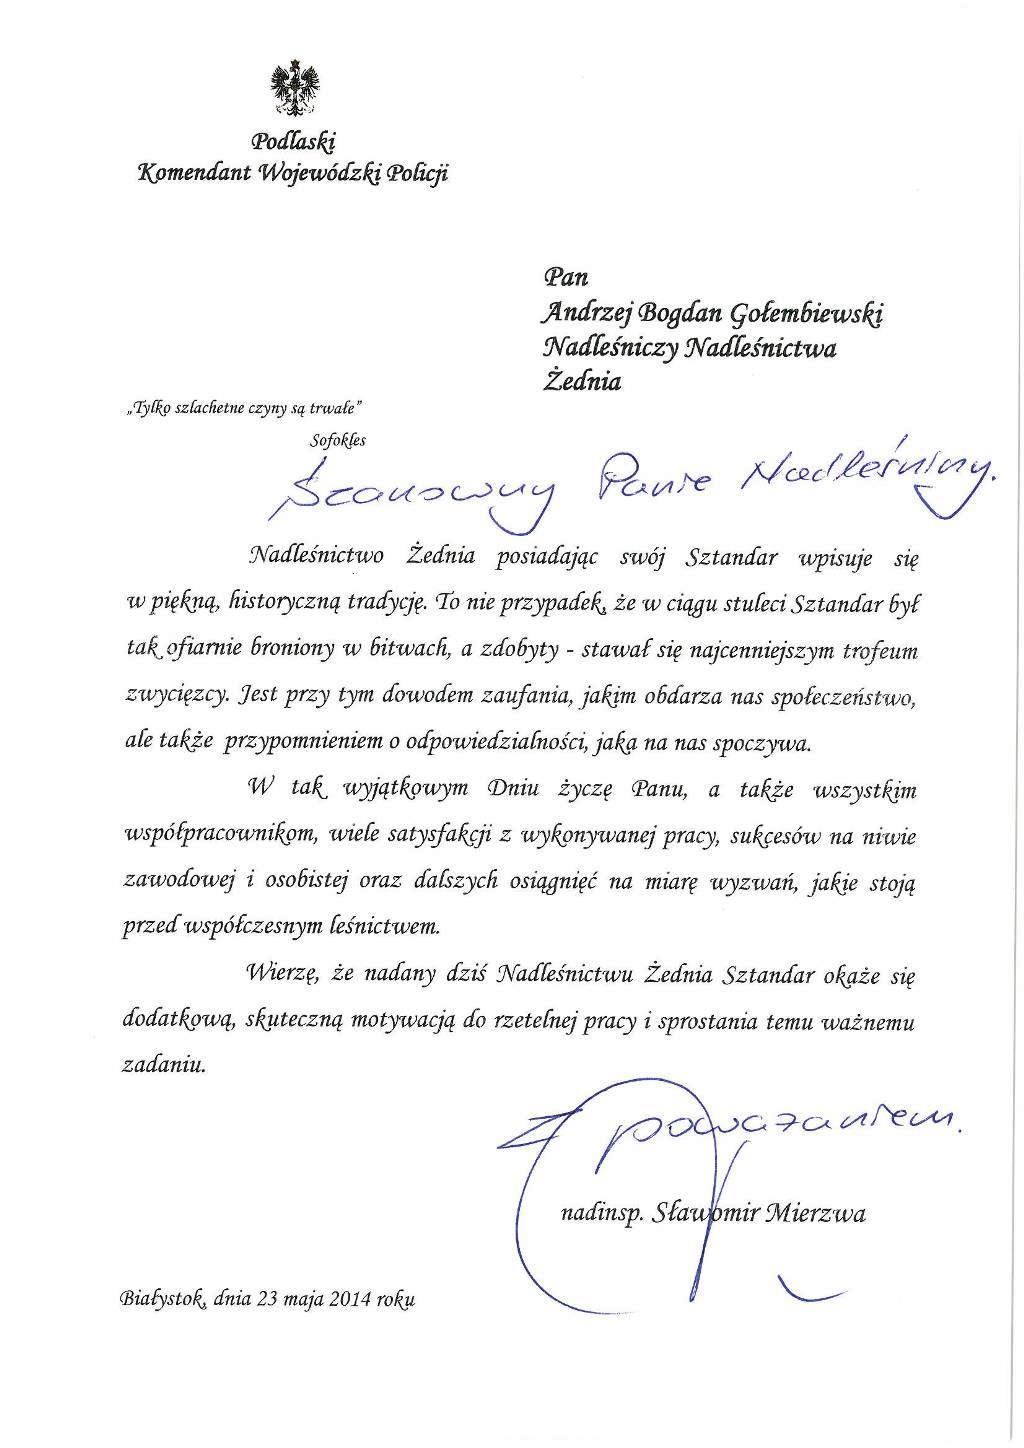 Podlaski
Komendant Wojewódzki Policji
Pan
Andrzej Bogdan Gołembiewski
Nadleśniczy Nadleśnictwa
Żednia
„Tylko szlachetne czyny są trwałe”
Sofokles
Szanowny Panie Nadleśniczy.
Nadleśnictwo Żednia posiadając swój Sztandar wpisuje się
w piękną, historyczną tradycję. To nie przypadek, że w ciągu stuleci Sztandar był
tak ofiarnie broniony w bitwach, a zdobyty - stawał się najcenniejszym trofeum
zwycięzcy. Jest przy tym dowodem zaufania, jakim obdarza nas społeczeństwo,
ale także przypomnieniem o odpowiedzialności, jaka na nas spoczywa.
W tak wyjątkowym Dniu życzę Panu, a także wszystkim
współpracownikom, wiele satysfakcji z wykonywanej pracy, sukcesów na niwie
zawodowej i osobistej oraz dalszych osiągnięć na miarę wyzwań, jakie stoją
przed współczesnym leśnictwem.
Wierzę, że nadany dziś Nadleśnictwu Żednia Sztandar okaże się
dodatkową, skuteczną motywacją do rzetelnej pracy i sprostania temu ważnemu
zadaniu.
Z poważaniem.
nadinsp. Sławomir Mierzwa
Białystok, dnia 23 maja 2014 roku